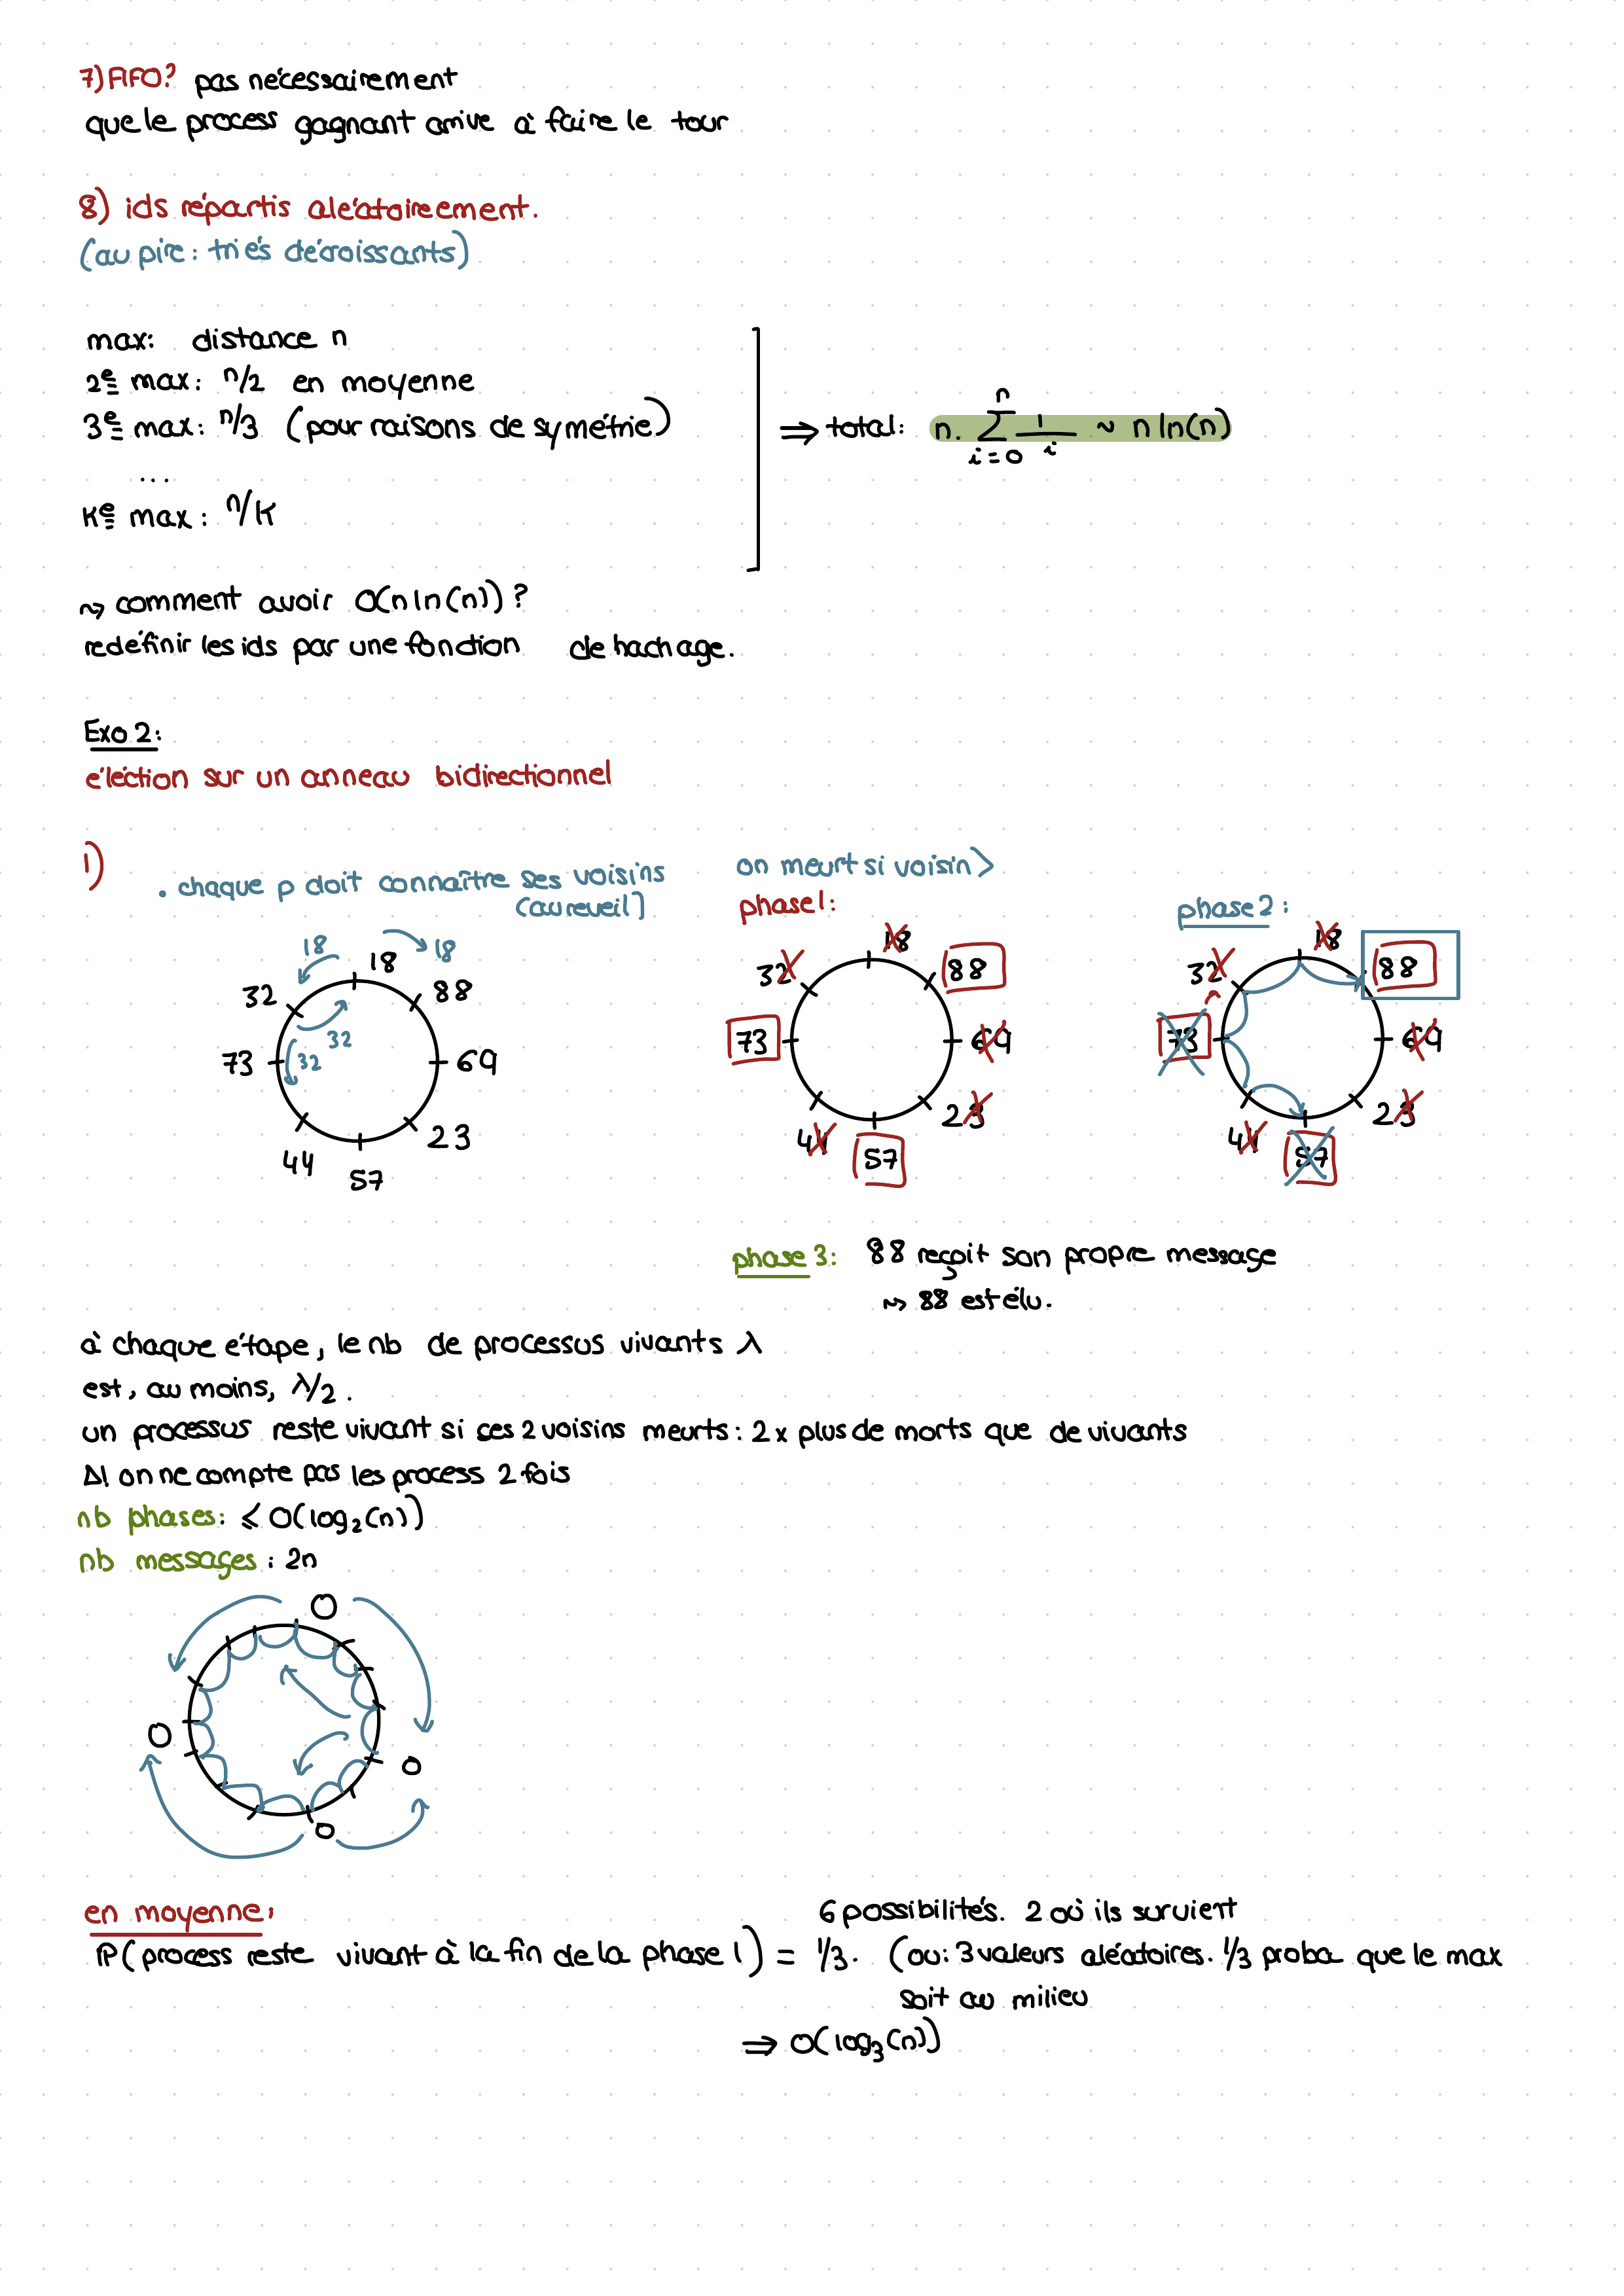 7) FIFO? pas nécessairement
que le process gagnant arrive à faire le tour
8) ids répartis aléatoirement.
(au pire : triés décroissants)
max: distance n
2e max : n/2 en moyenne
3e max : n/3 (pour raisons de symétrie)
...
Ke max : n/K
⇒ total : n. Σ_{i=0}^{n} 1/i ~ n ln(n)
⇝ comment avoir O(n ln(n)) ?
redéfinir les ids par une fonction de hachage.
Exo 2:
éléction sur un anneau bidirectionnel
1)
. chaque p doit connaître ses voisins
(au reveil)
18 18
18
32 88
32
73 32 69
44 23
57
on meurt si voisin >
phase 1:
18
32 88
73 69
44 23
57
phase 2 :
18
32 88
73 69
44 23
57
phase 3 : 88 reçoit son propre message
⇝ 88 est élu.
à chaque étape, le nb de processus vivants λ
est, au moins, λ/2 .
un processus reste vivant si ses 2 voisins meurts : 2 x plus de morts que de vivants
Δ! on ne compte pas les process 2 fois
nb phases : ≤ O(log₂(n))
nb messages : 2n
O
O
O
O
en moyenne :
6 possibilités. 2 où ils survient
P(process reste vivant à la fin de la phase 1) = 1/3. (ou : 3 valeurs aléatoires. 1/3 proba que le max
soit au milieu
⇒ O(log₃(n))